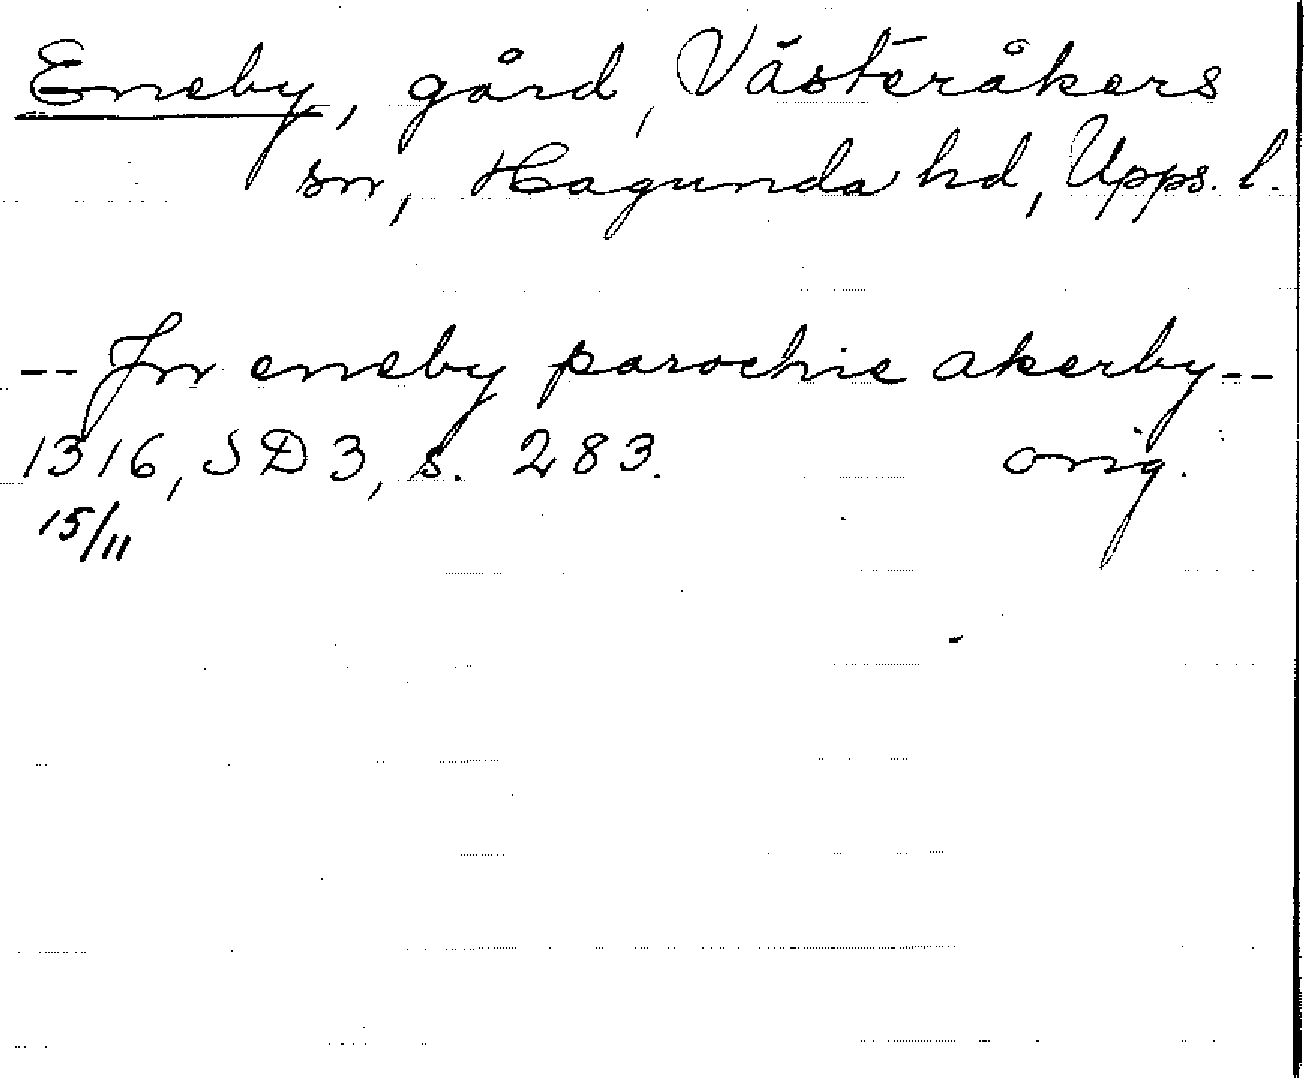 Eneby, gård, Västeråkers
sn, Hagunda hd, Upps. l.
-- Jn eneby parochie akerby--
1316, SD 3, s. 283. orig.
15/11